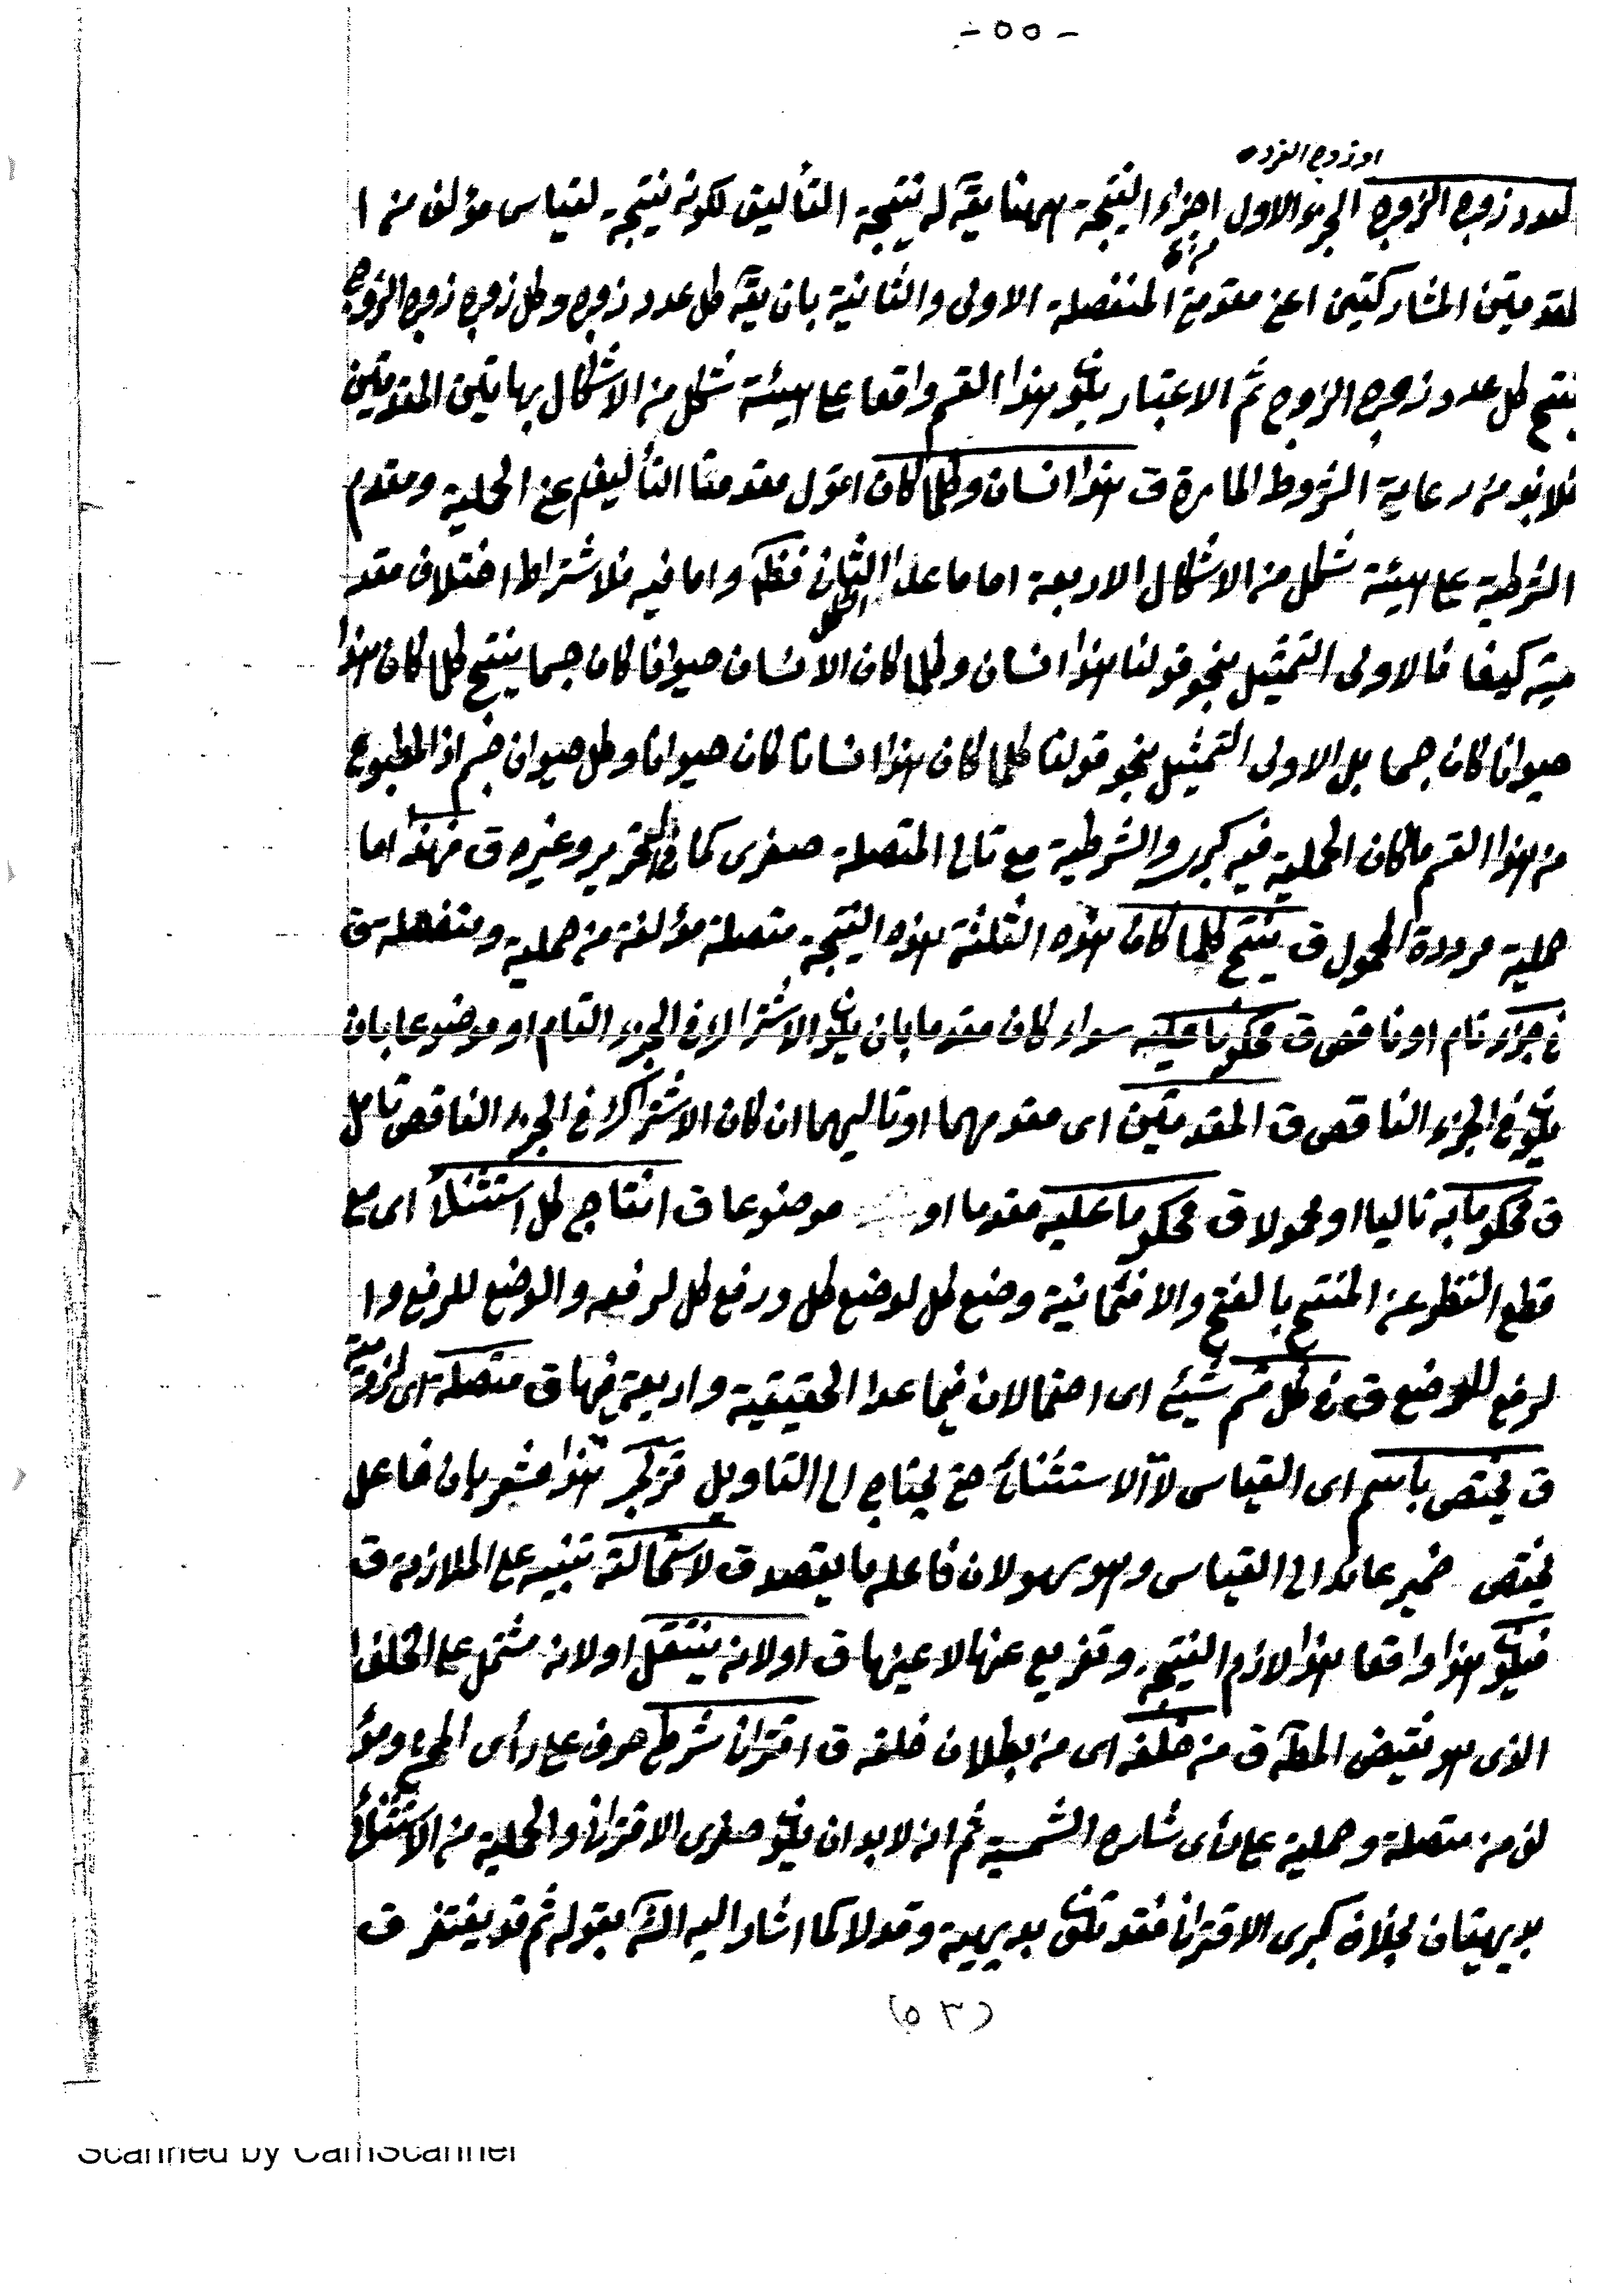 - ٥٥ -
او زوج الفرد
لعدد زوج الزوج الجزء الاول اجزاء النتيجة ههنا يقه له نتيجة التأليف لكونه نتيجة لقياس مؤلف من ا
لمقدمتين المشاركتين اعنى مقدمة المنفصلة الاولى والثانية بان يقه كل عدد زوج وكل زوج زوج الزوج
ينتج كل عدد زوج الزوج ثم الاعتبار يكون هذا القسم واقعا على هيئة شكل من الاشكال بهاتين المقدمتين
فلابد من رعاية الشروط المارة ق هذا انسان وكلما كان اقول مقدمتا التأليف عن الحملية ومقدم
الشرطية على هيئة شكل من الاشكال الاربعة اما ما عدا الثانى فظه واما فيه فلاشتراط اختلاف مقد
ميته كيفا فالاولى التمثيل بنحو قولنا هذا انسان وكلما كان الانسان حيوانا كان جسما ينتج كلما كان هذا
حيوانا كان جسما بل الاولى التمثيل بنحو قولنا كلما كان هذا انسانا كان حيوانا وكل حيوان جسم اذ المطبوع
من هذا القسم ما كان الحملية فيه كبرى والشرطية مع تالى المتصلة صغرى كما فى التحرير وغيره ق فهذا اما
حملية مرددة المحمول ق ينتج كلما كان هذه الثلثة هذه النتيجة متصلة مؤلفة من حملية ومنفصلة ق
فى جزء تام او ناقص ق محكوما عليه سواء كان مقدما بان يكون الاشتراك فى الجزء التام او موضوعا بان
يكون فى الجزء الناقص ق المقدمتين اى مقدمهما او تاليهما ان كان الاشتراك فى الجزء الناقص تامل
ق محكوما به تاليا او محمولا ق محكوما عليه مقدما او موضوعا ق انتاج كل استثنائى اى مع
قطع النظر عن المنتج بالفتح والاثمانية وضع كل لوضع كل ورفع كل لرفعه والوضع للرفع وا
لرفع للوضع ق فى كل قسم شيئ اى احتمالان فيما عدا الحقيقية واربعة فيها ق متصلة اى لزومية
ق يختص باسم اى القياس لا الاستثنائى حتى يحتاج الى التاويل هذا مشعر بان فاعل
يختص ضمير عائد الى القياس وهو سهو لان فاعله ما يقصد ق لاستحالة تنبيه على الملازمة ق
فيكون هذا واقعا هذا لازم النتيجة وتفريع عنها لا عينها ق اولانه ينتقل او لانه مشتمل على الخلف ا
الذى هو نقيض المطه ق من خلفه اى من بطلان خلفه ق اقترانى شرطى صرف على رأى المحـ ومؤ
لف من متصلة وحملية على رأى شارح الشمسية ثم انه لابد ان يكون صغرى الاقترانى والحملية من الاستثنائى
بديهيتان بخلاف كبرى الاقترانى فقد تكون بديهية وقد لا كما اشار اليه الشه بقوله ثم قد يفتقر ق
(٥٣)
Scanned by CamScanner